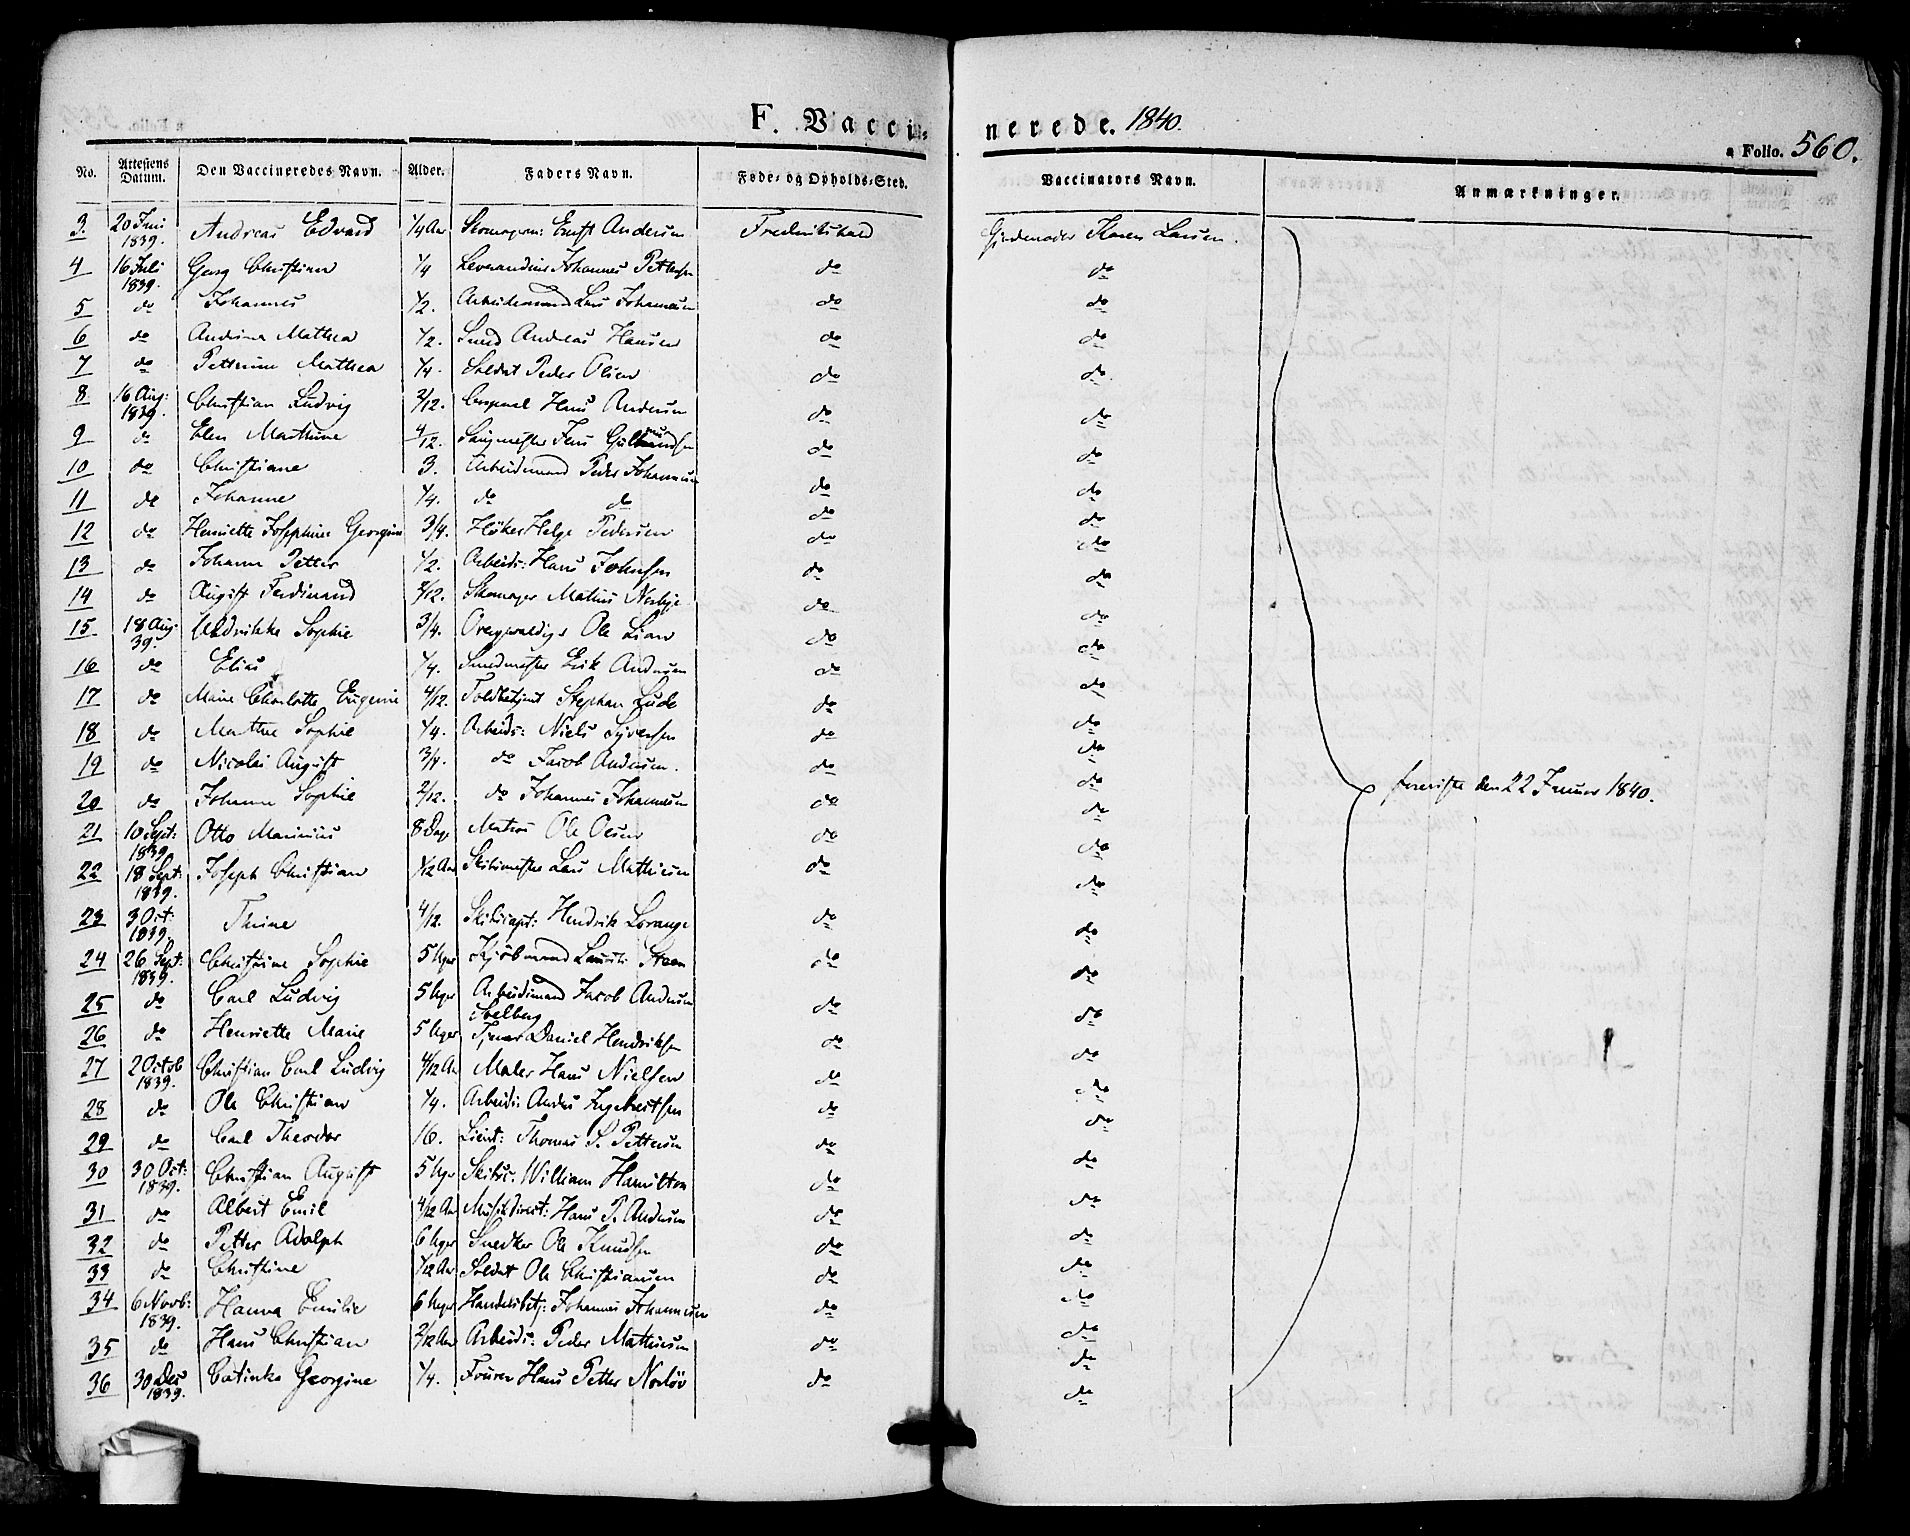 F. Vacci=
nerede. 1840.
a Folio. 560.
No. Attestens Datum. Den Vaccineredes Navn. Alder. Faders Navn. Føde= og Opholds=Sted. Vaccinators Navn. Anmærkninger.
3. 20 Juni 1839. Andreas Edvard 1/4 Aar Skomagerm: Ernst Andersen Frederikshald Gjordemoder Karen Larsen.
4 16 Juli 1839. Georg Christian 1/4 Johannes Pettersen do do
5 do Johannes 1/2. Arbeidsmand Lars Johannesen do do
6 do Andrine Mathea 1/2. Smed Andreas Hansen do do
7 do Pettrine Mathea 1/4. Soldat Peder Olsen do do.
8. 16 Aug: 1839. Christian Ludvig 2/12. Corporal Hans Andersen do do
9 do Elen Marthine 4/12. Jens do do
10 do Christiane 3. Arbeidsmand Peder Johannesen do do
11 do Johanne 1/4. do do do do
12 do Henriette Josephine Georgine 3/4. Høker Helge Pedersen do do
13 do Johann Petter 1/2. Arbeids: Hans Johnsen do do
14 do August Ferdinand 2/12. Skomager Mathias do do
15 18 Aug: 39. Sophie 3/4. Ole Lian do do
16 do Elias 1/4. Smedmester Erik Andersen do do
17 do Marie Charlotte Eugenie 4/12. Toldbetjent Stephan Lude do do
18 do Marthe Sophie 1/4. Arbeids: Niels Syversen do do
19 do Nicolai August 3/4. do Jacob Andersen. do do
20 do Johanne Sophie 2/12. do Johannes Johannesen do do
21 10 Sept: 1839. Otto Marinius 8 Dage Matros Ole Olsen do do
22 18 Sept: 1839. Joseph Christian 1/12 Aar Lars Mathiesen do do
23 3 Oct: 1839. Thrine 4/12. Skibscapt: Hendrik Lorange do do
24 26 Sept: 1839. Christine Sophie 5 Uger Kjøbmand Lauritz Steen do do
25 do Carl Ludvig 5 Uger Arbeidsmand Jacob Andersen do do
26 do Henriette Marie 5 Uger Daniel Hendriksen do do
27 2 Octob 1839. Christian Carl Ludvig 4/12 Aar Maler Hans Nielsen do do
28 do Ole Christian 1/4. Arbeids: Anders Ingebretsen do do
29 do Carl Theodor 16. Lieut: Thomas S. Pettersen do do
30 30 Oct: 1839. Christian August 5 Uger Skibsc. William Hamilton do do
31 do Albert Emil 4/12 Aar Musikdirect: Hans P. Andersen do do
32 do Petter Adolph 6 Uger Snedker Ole Knudsen do do
33 do Christine 1/12 Aar Soldat Ole Christiansen do do
34 6 Novb: 1839. Hanna Emilie 6 Uger Handelsbetj: Johannes Johannesen do do
35 do Hans Christian 2/12 Aar Arbeids: Peder Mathiesen do do
36 30 Dec 1839. Catinka Georgine 1/4. Fourer Hans Petter do do
foreviste den 22 Januar 1840.